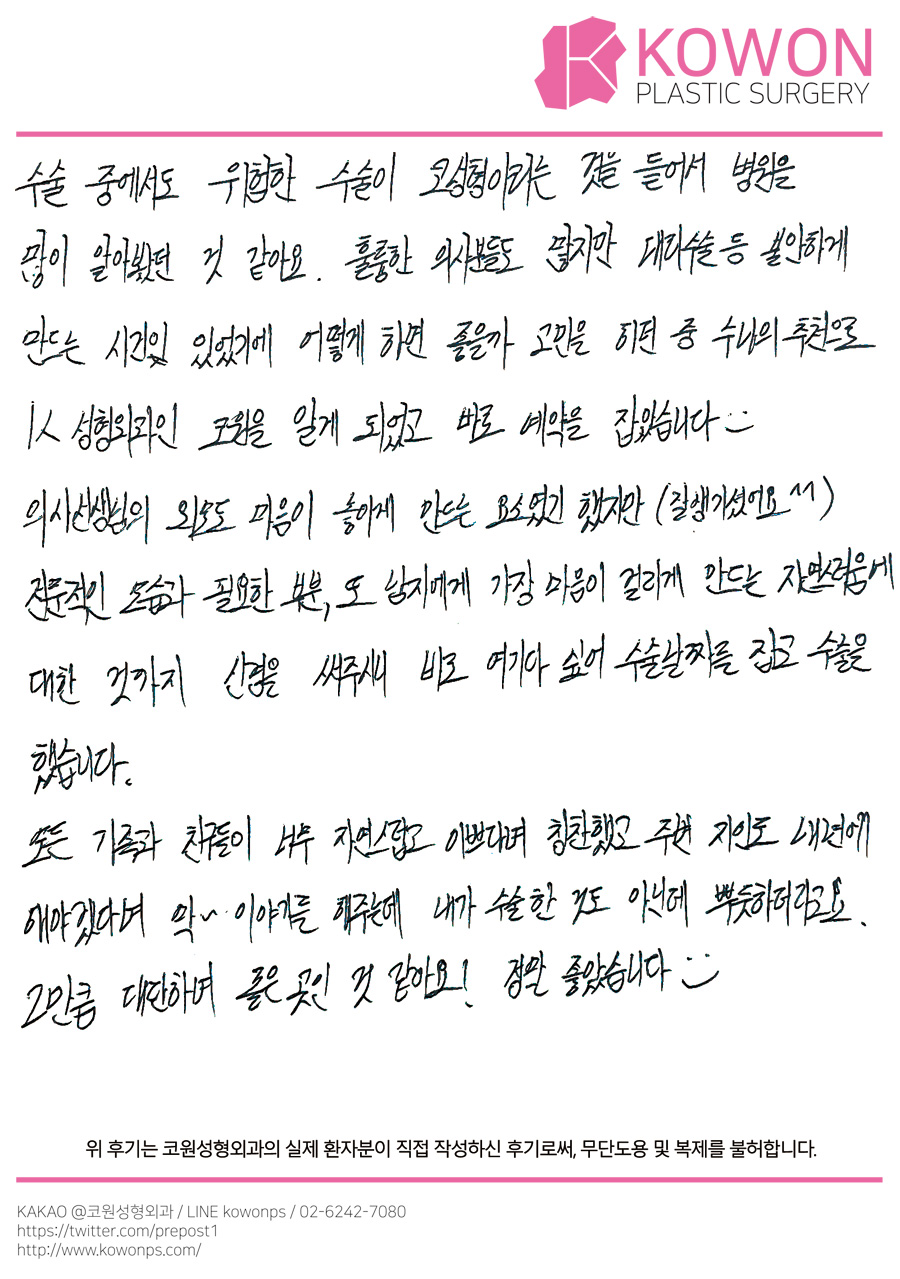 KOWON
PLASTIC SURGERY
수술 중에서도 위험한 수술이 코성형이라는 것을 들어서 병원을
많이 알아봤던 것 같아요. 훌륭한 의사분들도 많지만 대리수술 등 불안하게
만드는 시건있 있었기에 어떻게 하면 좋을까 고민을 하던 중 수나의 추천으로
1人 성형외과인 코원을 알게 되었고 바로 예약을 잡았습니다 :)
의사선생님의 외모도 마음이 놓이게 만드는 요소였긴 했지만 (잘생기셨어요^^)
전문적인 모습과 필요한 부분, 또 남자에게 가장 마음이 걸리게 만드는 자연스러움에
대한 것까지 신경을 써주시니 바로 여기다 싶어 수술날짜를 잡고 수술을
했습니다.
모든 가족과 친구들이 너무 자연스럽고 이쁘다며 칭찬했고 주변 지인도 내년에
해야겠다며 막~ 이야기를 해주는데 내가 수술한 것도 아닌데 뿌듯하더라고요.
그만큼 대단하며 좋은 곳인 것 같아요! 정말 좋았습니다 :)
위 후기는 코원성형외과의 실제 환자분이 직접 작성하신 후기로써, 무단도용 및 복제를 불허합니다.
KAKAO @코원성형외과 / LINE kowonps / 02-6242-7080
https://twitter.com/prepost1
http://www.kowonps.com/